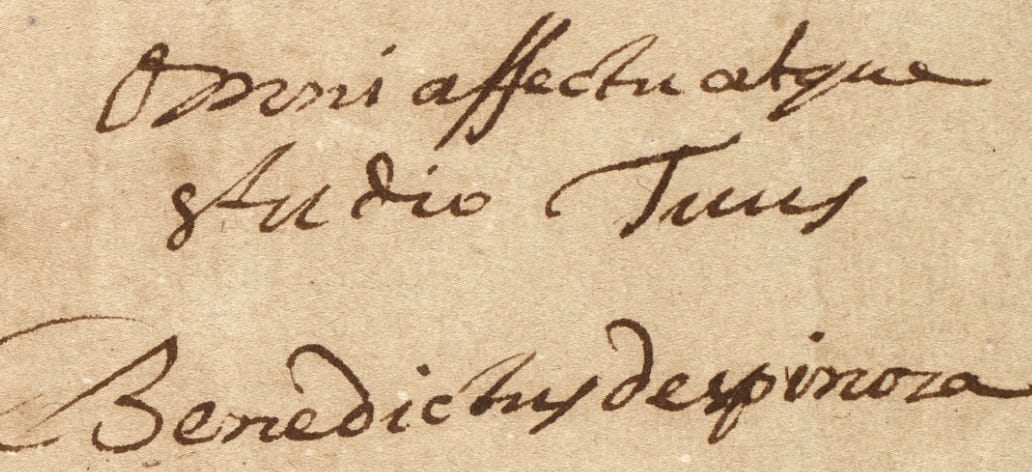 Omni affectu atque
studio Tuus
Benedictus despinoza